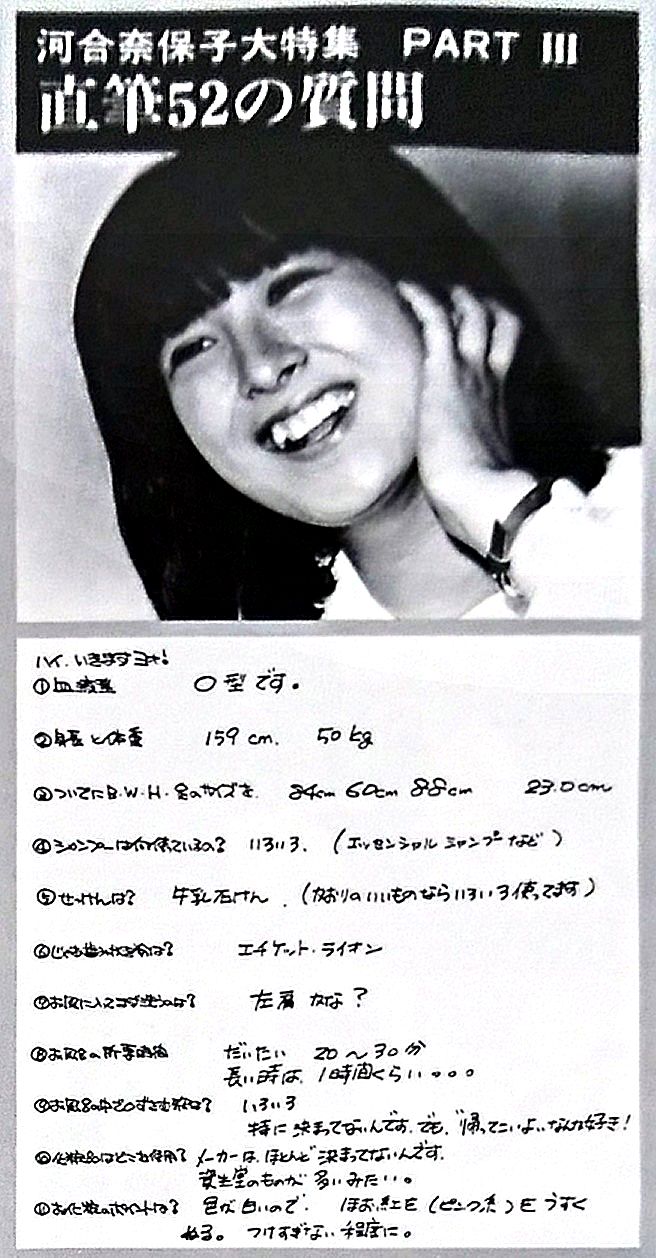 河合奈保子大特集 PART III
直筆52の質問
ハイ、いきますヨォ!
①血液型 O型です。
②身長と体重 159cm. 50kg
③ついでにB・W・H・足のサイズを. 84cm 60cm 88cm 23.0cm
④シャンプーは何使ってるの? いろいろ. (エッセンシャルシャンプーなど)
⑤せっけんは? 牛乳石けん. (かおりのいいものならいろいろ使ってます)
⑥じゃあ歯みがき粉は? エチケット・ライオン
⑦お風呂に入ってまず洗うのは? 左肩かな?
⑧お風呂の所要時間 だいたい 20〜30分
長い時は、1時間くらい。。。
⑨お風呂の中で口ずさむ歌は? いろいろ
特に決まってないんです。でも、"帰ってこいよ"なんか好き!
⑩化粧品はどこを使用? メーカーは、ほとんど決まってないんです。
資生堂のものが多いみたい。
⑪お化粧のポイントは? 色が白いので、ほお紅を(ピンク系)をうすく
ぬる。つけすぎない程度に。